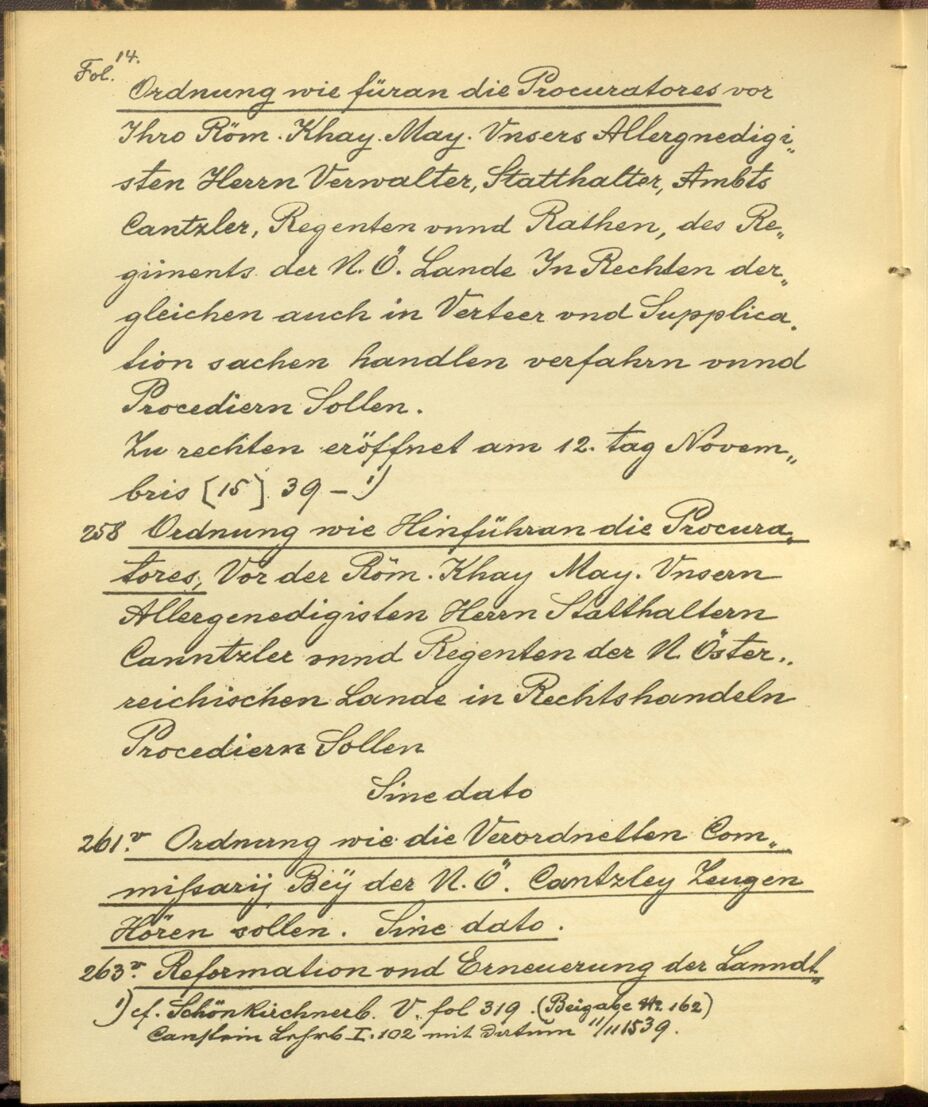 Fol. 14.
Ordnung wie füran die Procuratores vor
Ihro Röm. Khay. May. Vnsers Allergnedigi„
sten Herrn Verwalter, Statthalter, Ambts
Cantzler, Regenten vnnd Rathen, des Re„
giments der N. Ö. Lande In Rechten der„
gleichen auch in Verteer vnd Supplica„
tion sachen handlen verfahrn vnnd
Procediern Sollen.
Zu rechten eröffnet am 12. tag Novem„
bris [15] 39 – 1)
258 Ordnung wie Hinführan die Procura„
tores, Vor der Röm. Khay May. Vnsern
Allergenedigisten Herrn Statthaltern
Canntzler vnnd Regenten der N. Öster„
reichischen Lande in Rechtshandeln
Procediern Sollen
Sine dato
261.v Ordnung wie die Verordnetten Com„
missarij Beÿ der N. Ö. Cantzley Zeugen
Hören sollen. Sine dato.
263v. Reformation vnd Erneuerung der Lanndt„
1) cf. Schönkirchnerb. V. fol 319. (Beigabe Nr 162)
I. 102 mit Datum 11/11 1539.